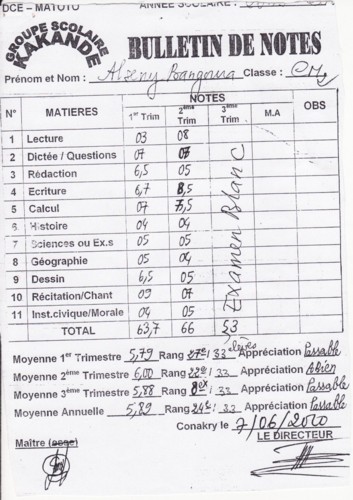 DCE - MATOTO ANNÉE SCOLAIRE :
GROUPE SCOLAIRE
KAKANDE
BULLETIN DE NOTES
Prénom et Nom : Alseny Bangoura Classe : CM2
N° MATIERES NOTES OBS
1er Trim 2ème Trim 3ème Trim M.A
1 Lecture 03 08
2 Dictée / Questions 07 07
3 Rédaction 6,5 05
4 Ecriture 6,7 8,5
5 Calcul 07 7,5
6 Histoire 04 04
7 Sciences ou Ex.s 05 05
8 Géographie 05 04
9 Dessin 6,5 05
10 Récitation/Chant 09 07
11 Inst.civique/Morale 04 05
Examen Blanc
TOTAL 63,7 66 53
Moyenne 1er Trimestre 5,79 Rang 27e / 33 élèves Appréciation Passable
Moyenne 2ème Trimestre 6,00 Rang 22e / 33 Appréciation A.bien
Moyenne 3ème Trimestre 5,88 Rang / 33 Appréciation Passable
Moyenne Annuelle 5,89 Rang 24e / 33 Appréciation Passable
Conakry le 7/06/2010
Maître LE DIRECTEUR